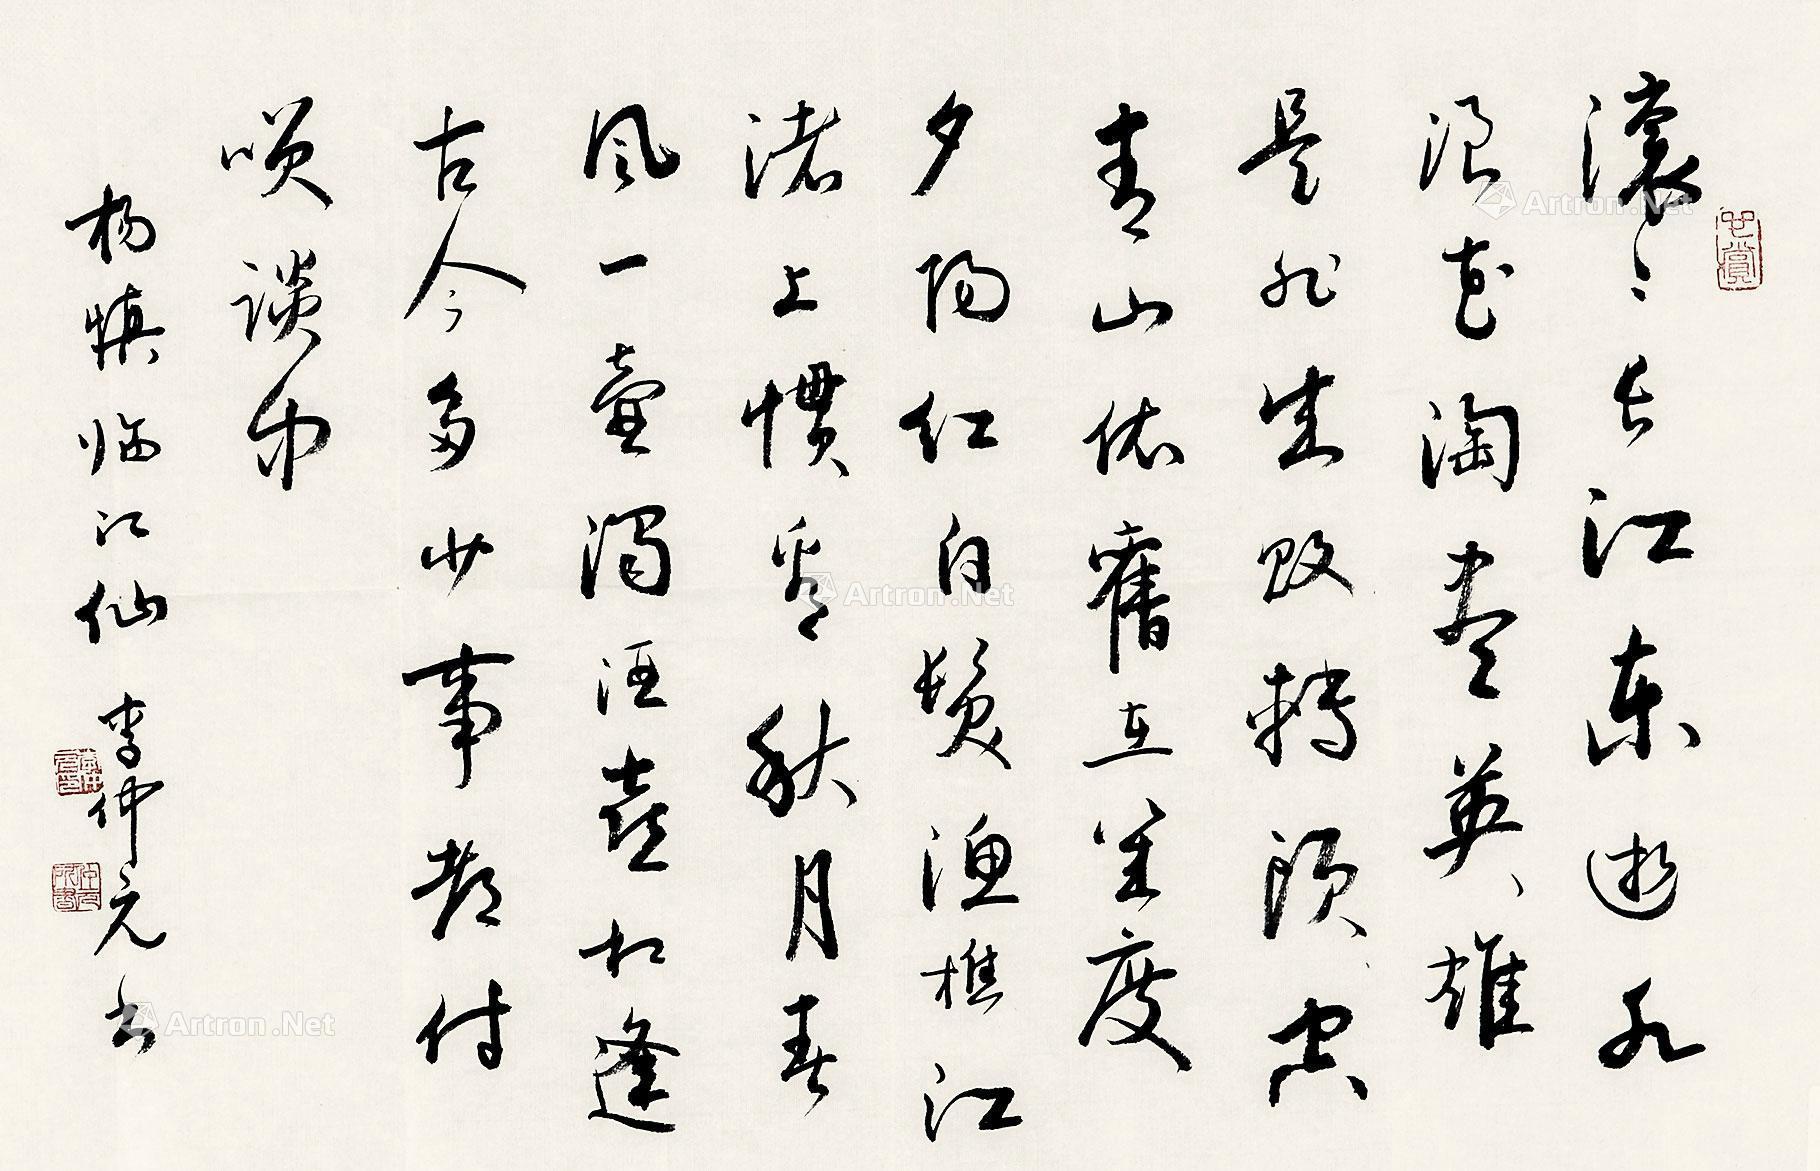 滚〻长江東逝水
浪花淘盡英雄
是非成败轉頭空
青山依舊在幾度
夕阳红白髮渔樵江
渚上惯看秋月春
风一壺濁酒喜相逢
古今多少事都付
笑談中
杨慎临江仙 李仲元书
Artron.Net
Artron.Net
Artron.Net